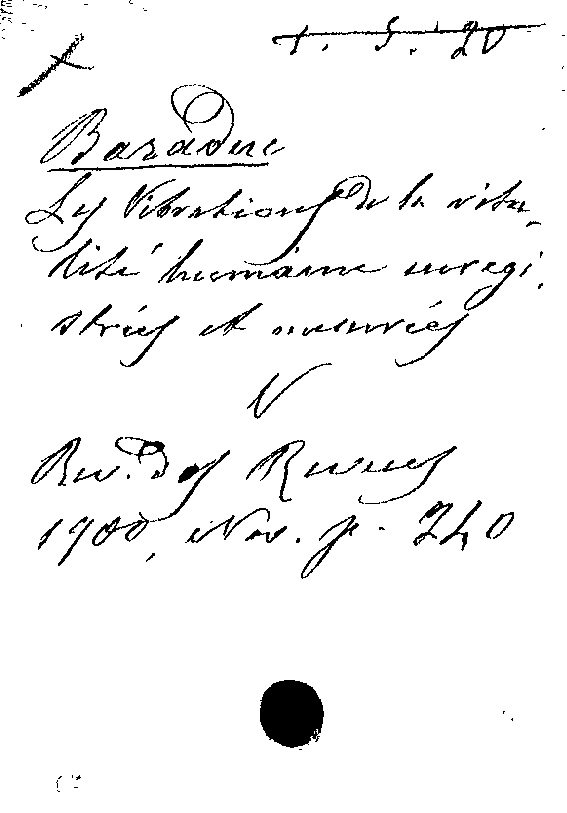 1. 5. 20
Baraduc
Les Vibrations de la vita-
lité humaine enregi-
strées et mesurées
V
Rev. des Revues
1900, Nov. p. 240